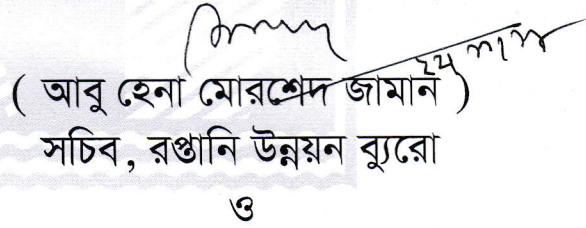 ( আবু হেনা মোরশেদ জামান )
সচিব, রপ্তানি উন্নয়ন ব্যুরো
ও